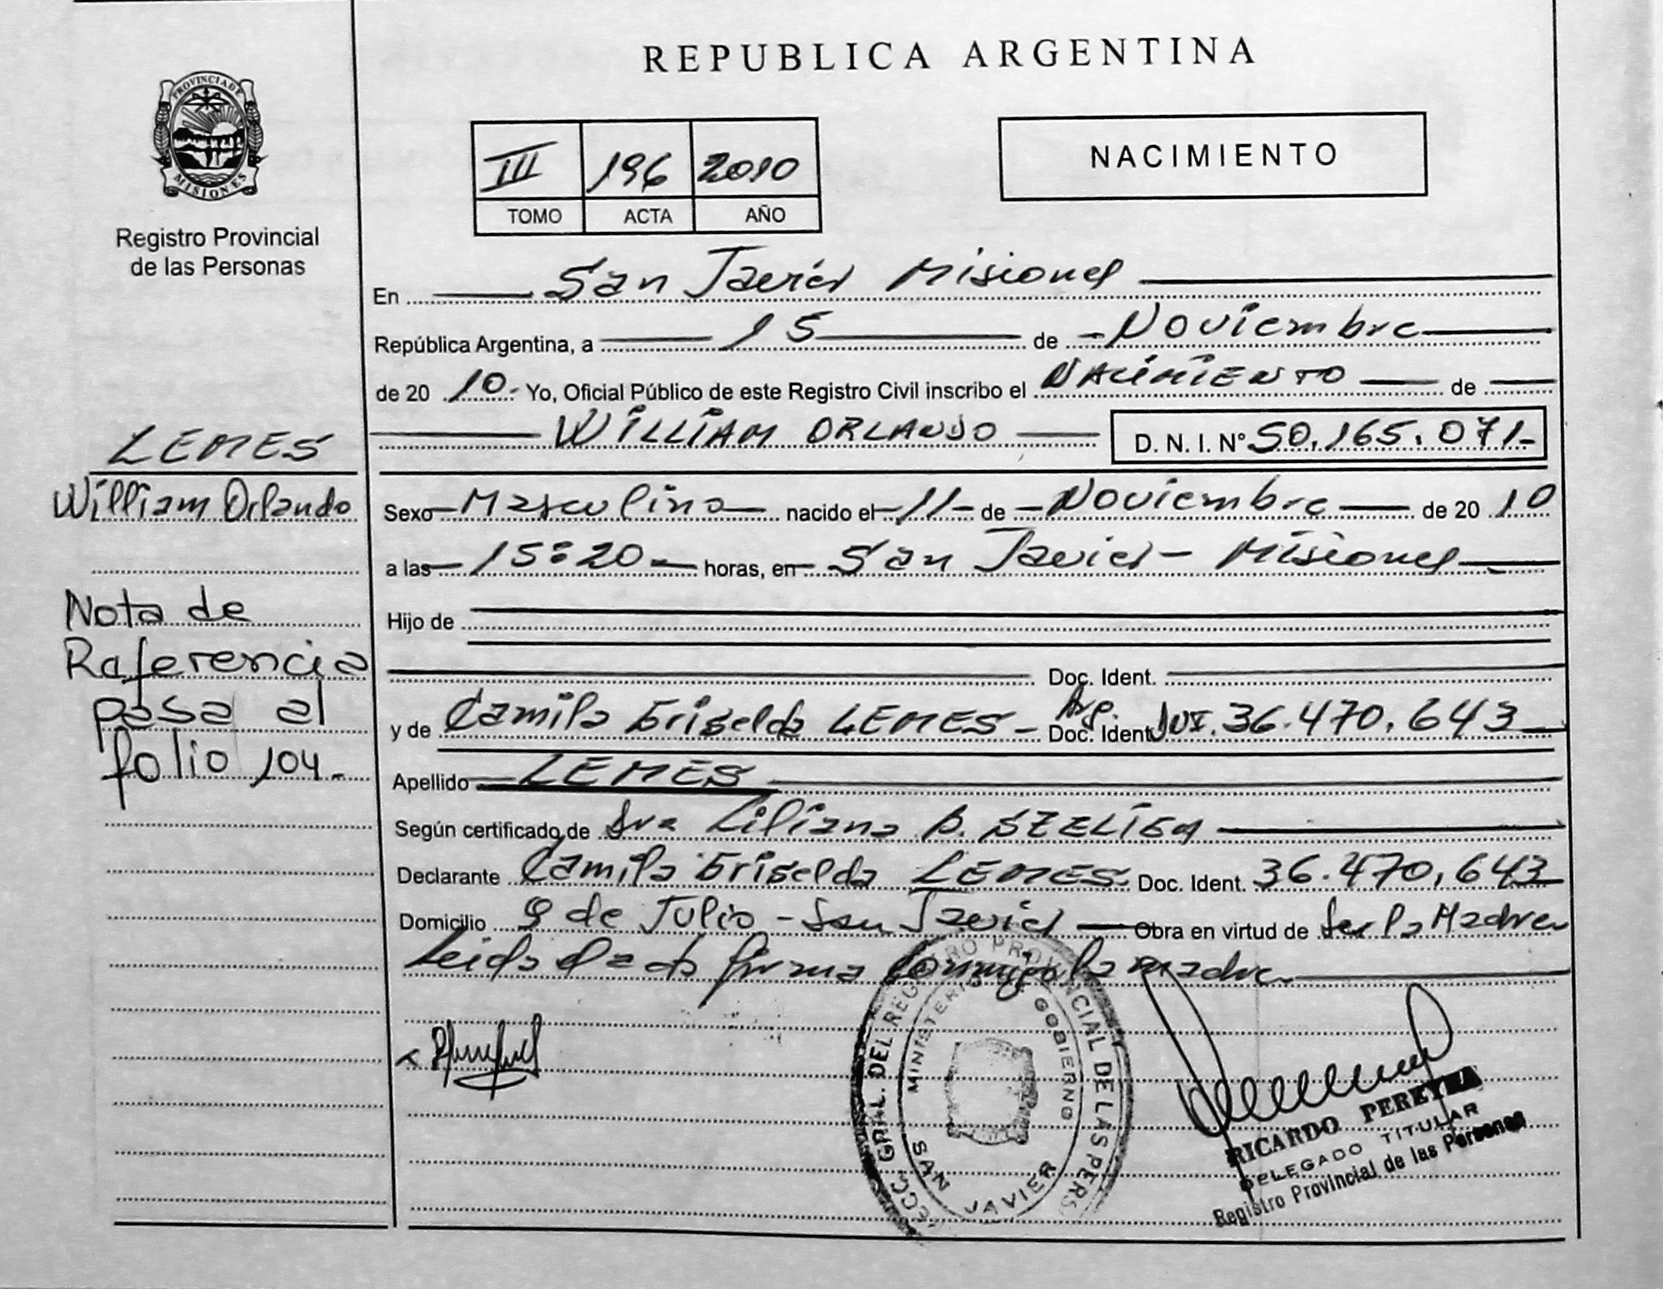 REPUBLICA ARGENTINA
PROVINCIA DE
MISIONES
Registro Provincial
de las Personas
III 196 2010
TOMO ACTA AÑO
NACIMIENTO
En San Javier Misiones
República Argentina, a 15 de Noviembre
de 20 10.- Yo, Oficial Público de este Registro Civil inscribo el NACIMIENTO de
WILLIAM ORLANDO D. N. I. Nº 50.165.071-
LEMES
William Orlando
Sexo Masculino nacido el 11 de Noviembre de 20 10
a las 15:20 horas, en San Javier - Misiones
Nota de
Referencia
pasa al
folio 104.-
Hijo de
Doc. Ident.
y de Camila Griselda LEMES - Arg. Doc. Ident. 36.470.643
Apellido LEMES
Según certificado de Dra Liliana B. SZELIGA
Declarante Camila Griselda LEMES. Doc. Ident. 36.470.643
Domicilio 9 de Julio - San Javier Obra en virtud de Ser la Madre
Leida el acta firma conmigo la madre
DIRECC. GRAL. DEL REGISTRO PROVINCIAL DE LAS PERS
MINISTERIO DE GOBIERNO
SAN JAVIER
RICARDO PEREYRA
DELEGADO TITULAR
Registro Provincial de las Personas